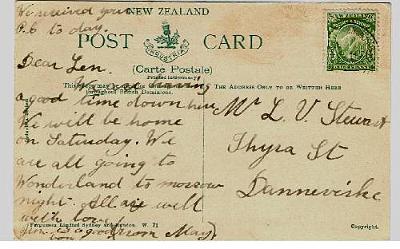 We received your
P.C to day.
NEW ZEALAND
POST CARD
(Carte Postale)
Dear Len.
We are having
a good time down here
We will be home
on Saturday. We
are all going to
Wonderland to morrow
night. All are well
with love
from May
THE ADDRESS ONLY TO BE WRITTEN HERE
Mr L. V. Stewart
Thyra St
Dannevirke
Fergusson Limited Sydney and London. W. 71
Copyright.